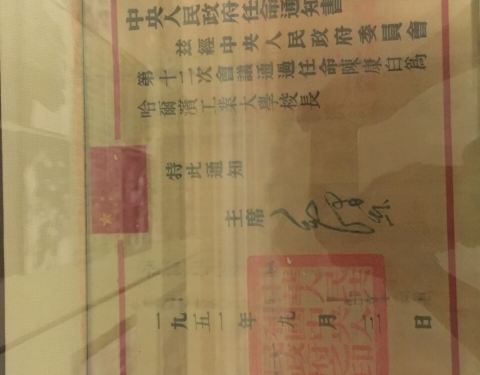 中央人民政府任命通知書
茲經中央人民政府委員會
第十二次會議通過任命陳康白爲
哈爾濱工業大學校長
特此通知
主席
一九五一年九月三日